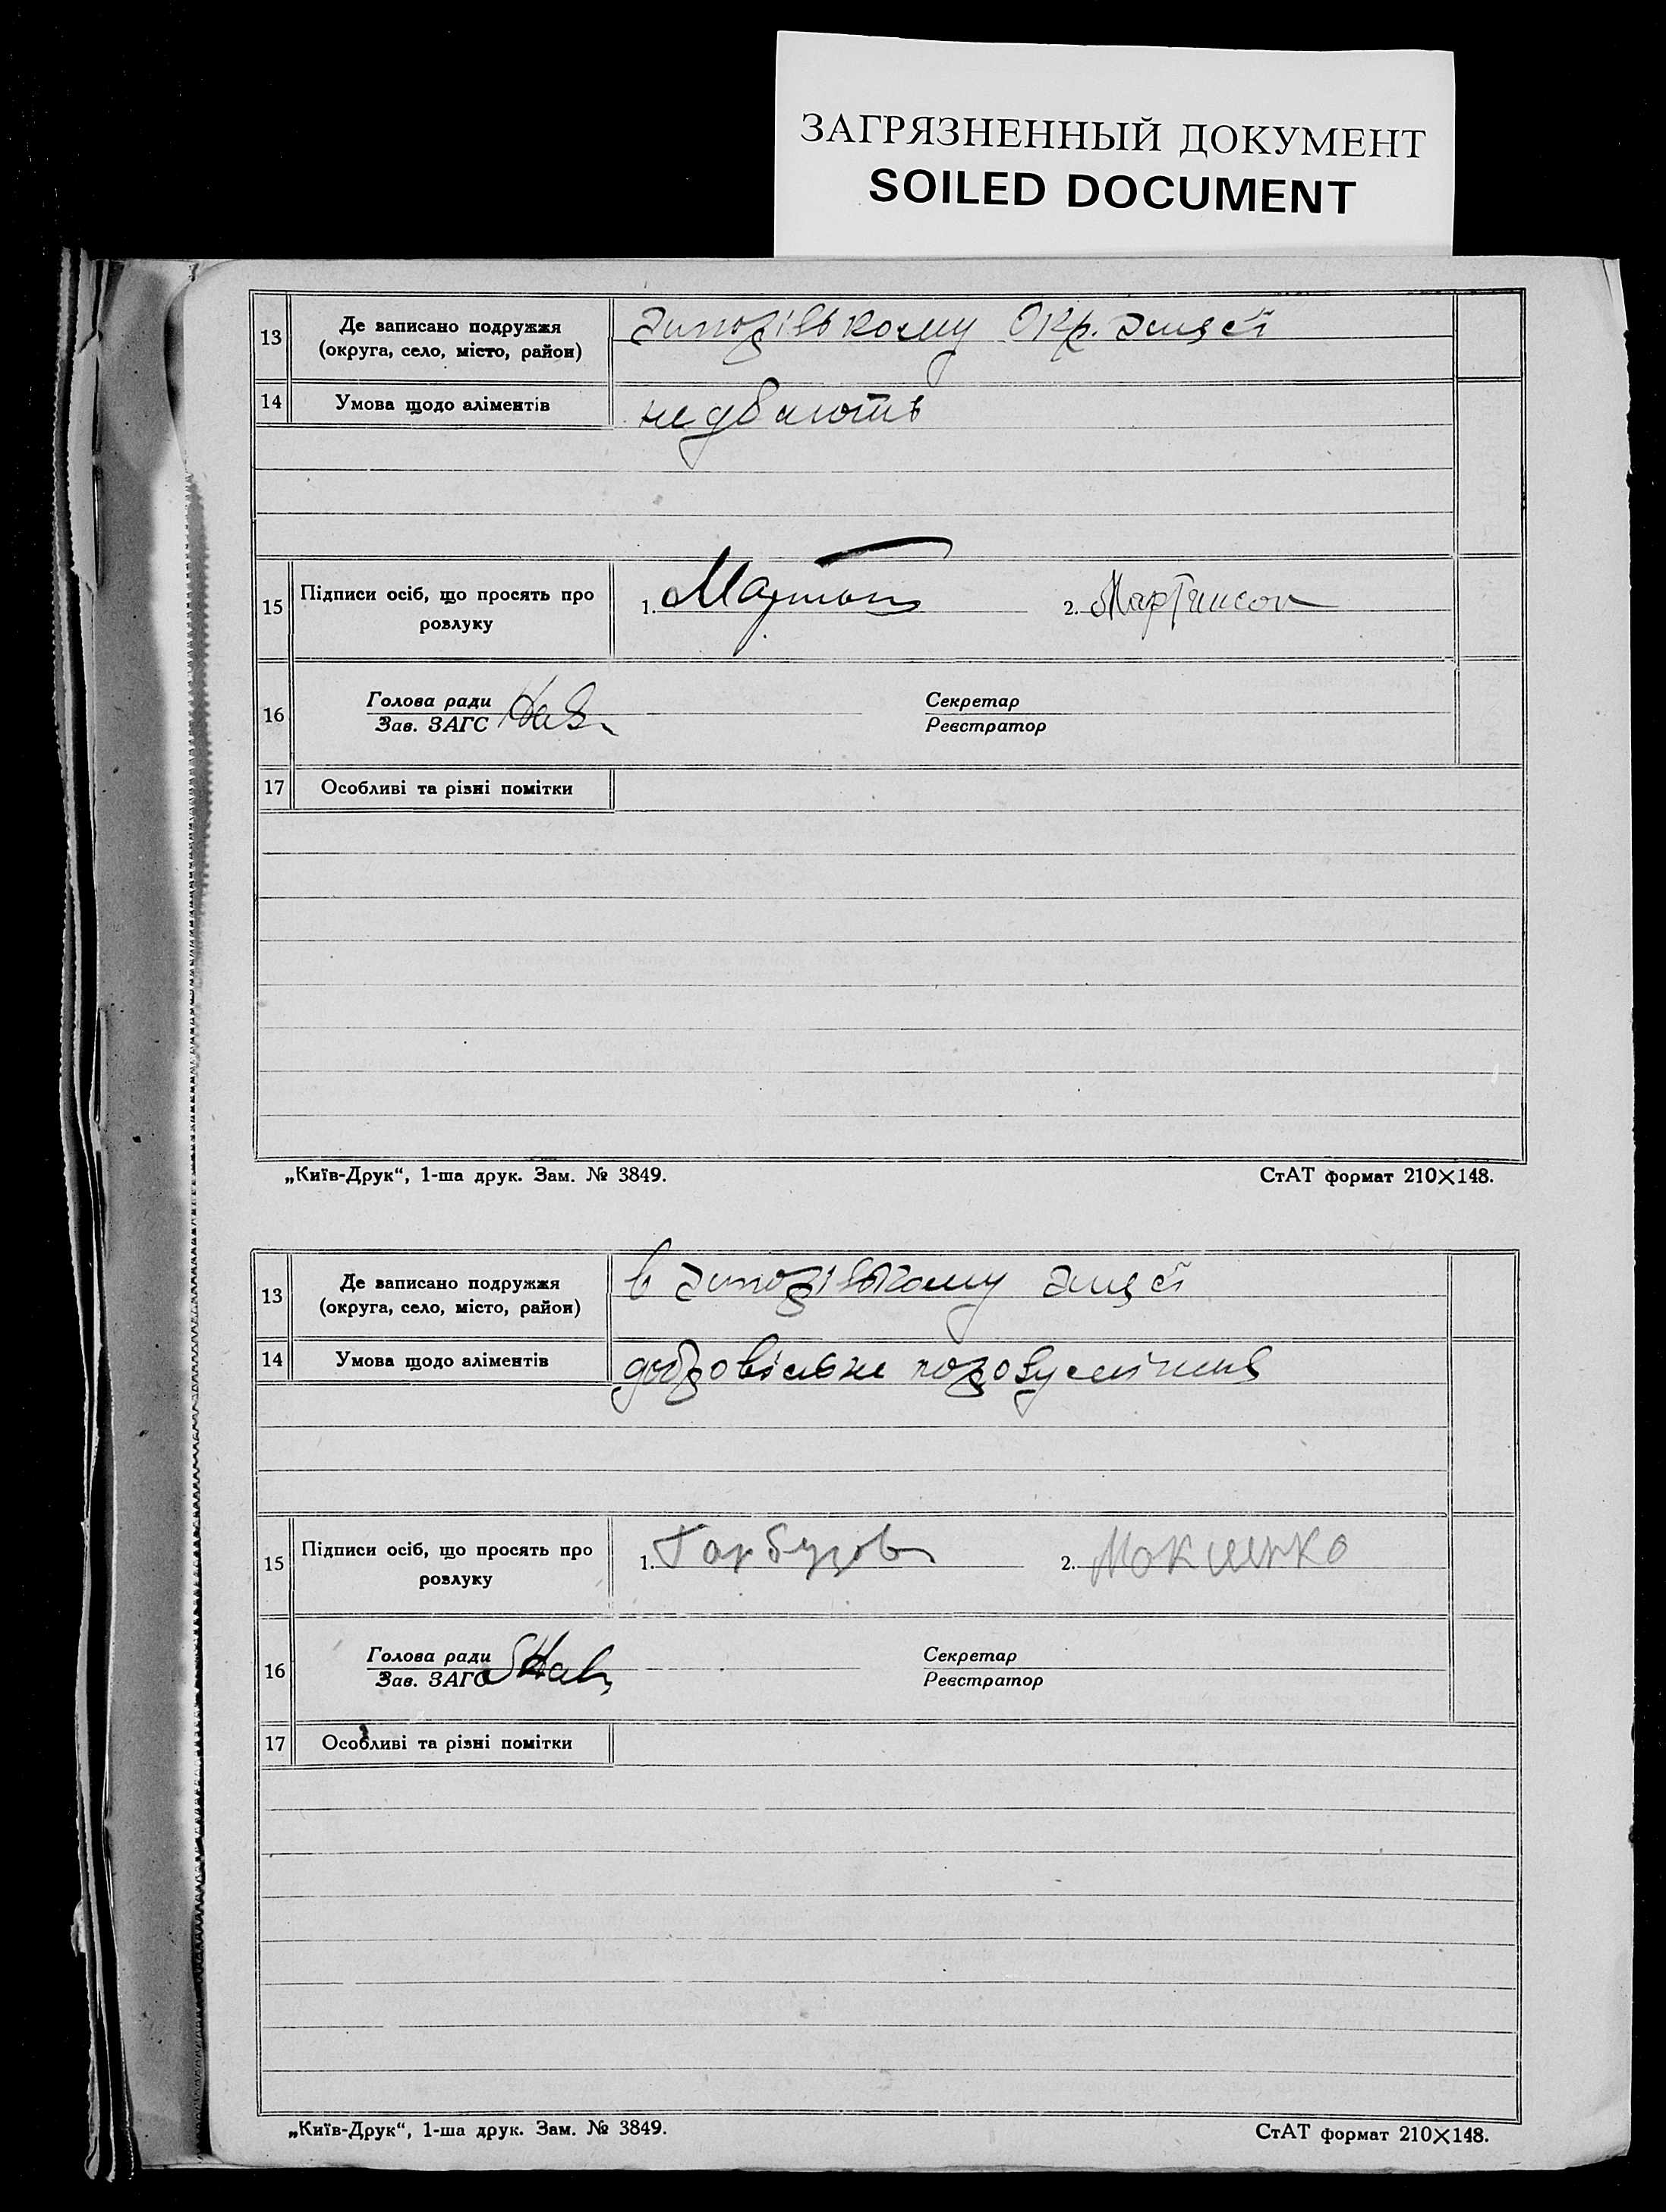 ЗАГРЯЗНЕННЫЙ ДОКУМЕНТ
SOILED DOCUMENT
13
Де записано подружжя
(округа, село, місто, район)
Запорізькому Окр. Загсі
14
Умова щодо аліментів
не дбають
15
Підписи осіб, що просять про
розлуку
1.
2. Мартинсон
16
Голова ради
Зав. ЗАГС
Секретар
Реєстратор
17
Особливі та різні помітки
„Київ-Друк“, 1-ша друк. Зам. № 3849.
СтАТ формат 210×148.
13
Де записано подружжя
(округа, село, місто, район)
в Запорізькому Загсі
14
Умова щодо аліментів
добровільне порозуміння
15
Підписи осіб, що просять про
розлуку
1. Гарбузов
2. Мокиенко
16
Голова ради
Зав. ЗАГС
Секретар
Реєстратор
17
Особливі та різні помітки
„Київ-Друк“, 1-ша друк. Зам. № 3849.
СтАТ формат 210×148.